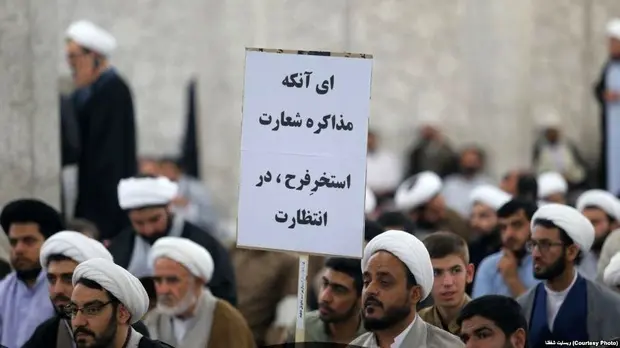 ای آنکه
مذاکره شعارت
استخرِفرح ، در
انتظارت
(Courtesy Photo) وبسایت شفقنا